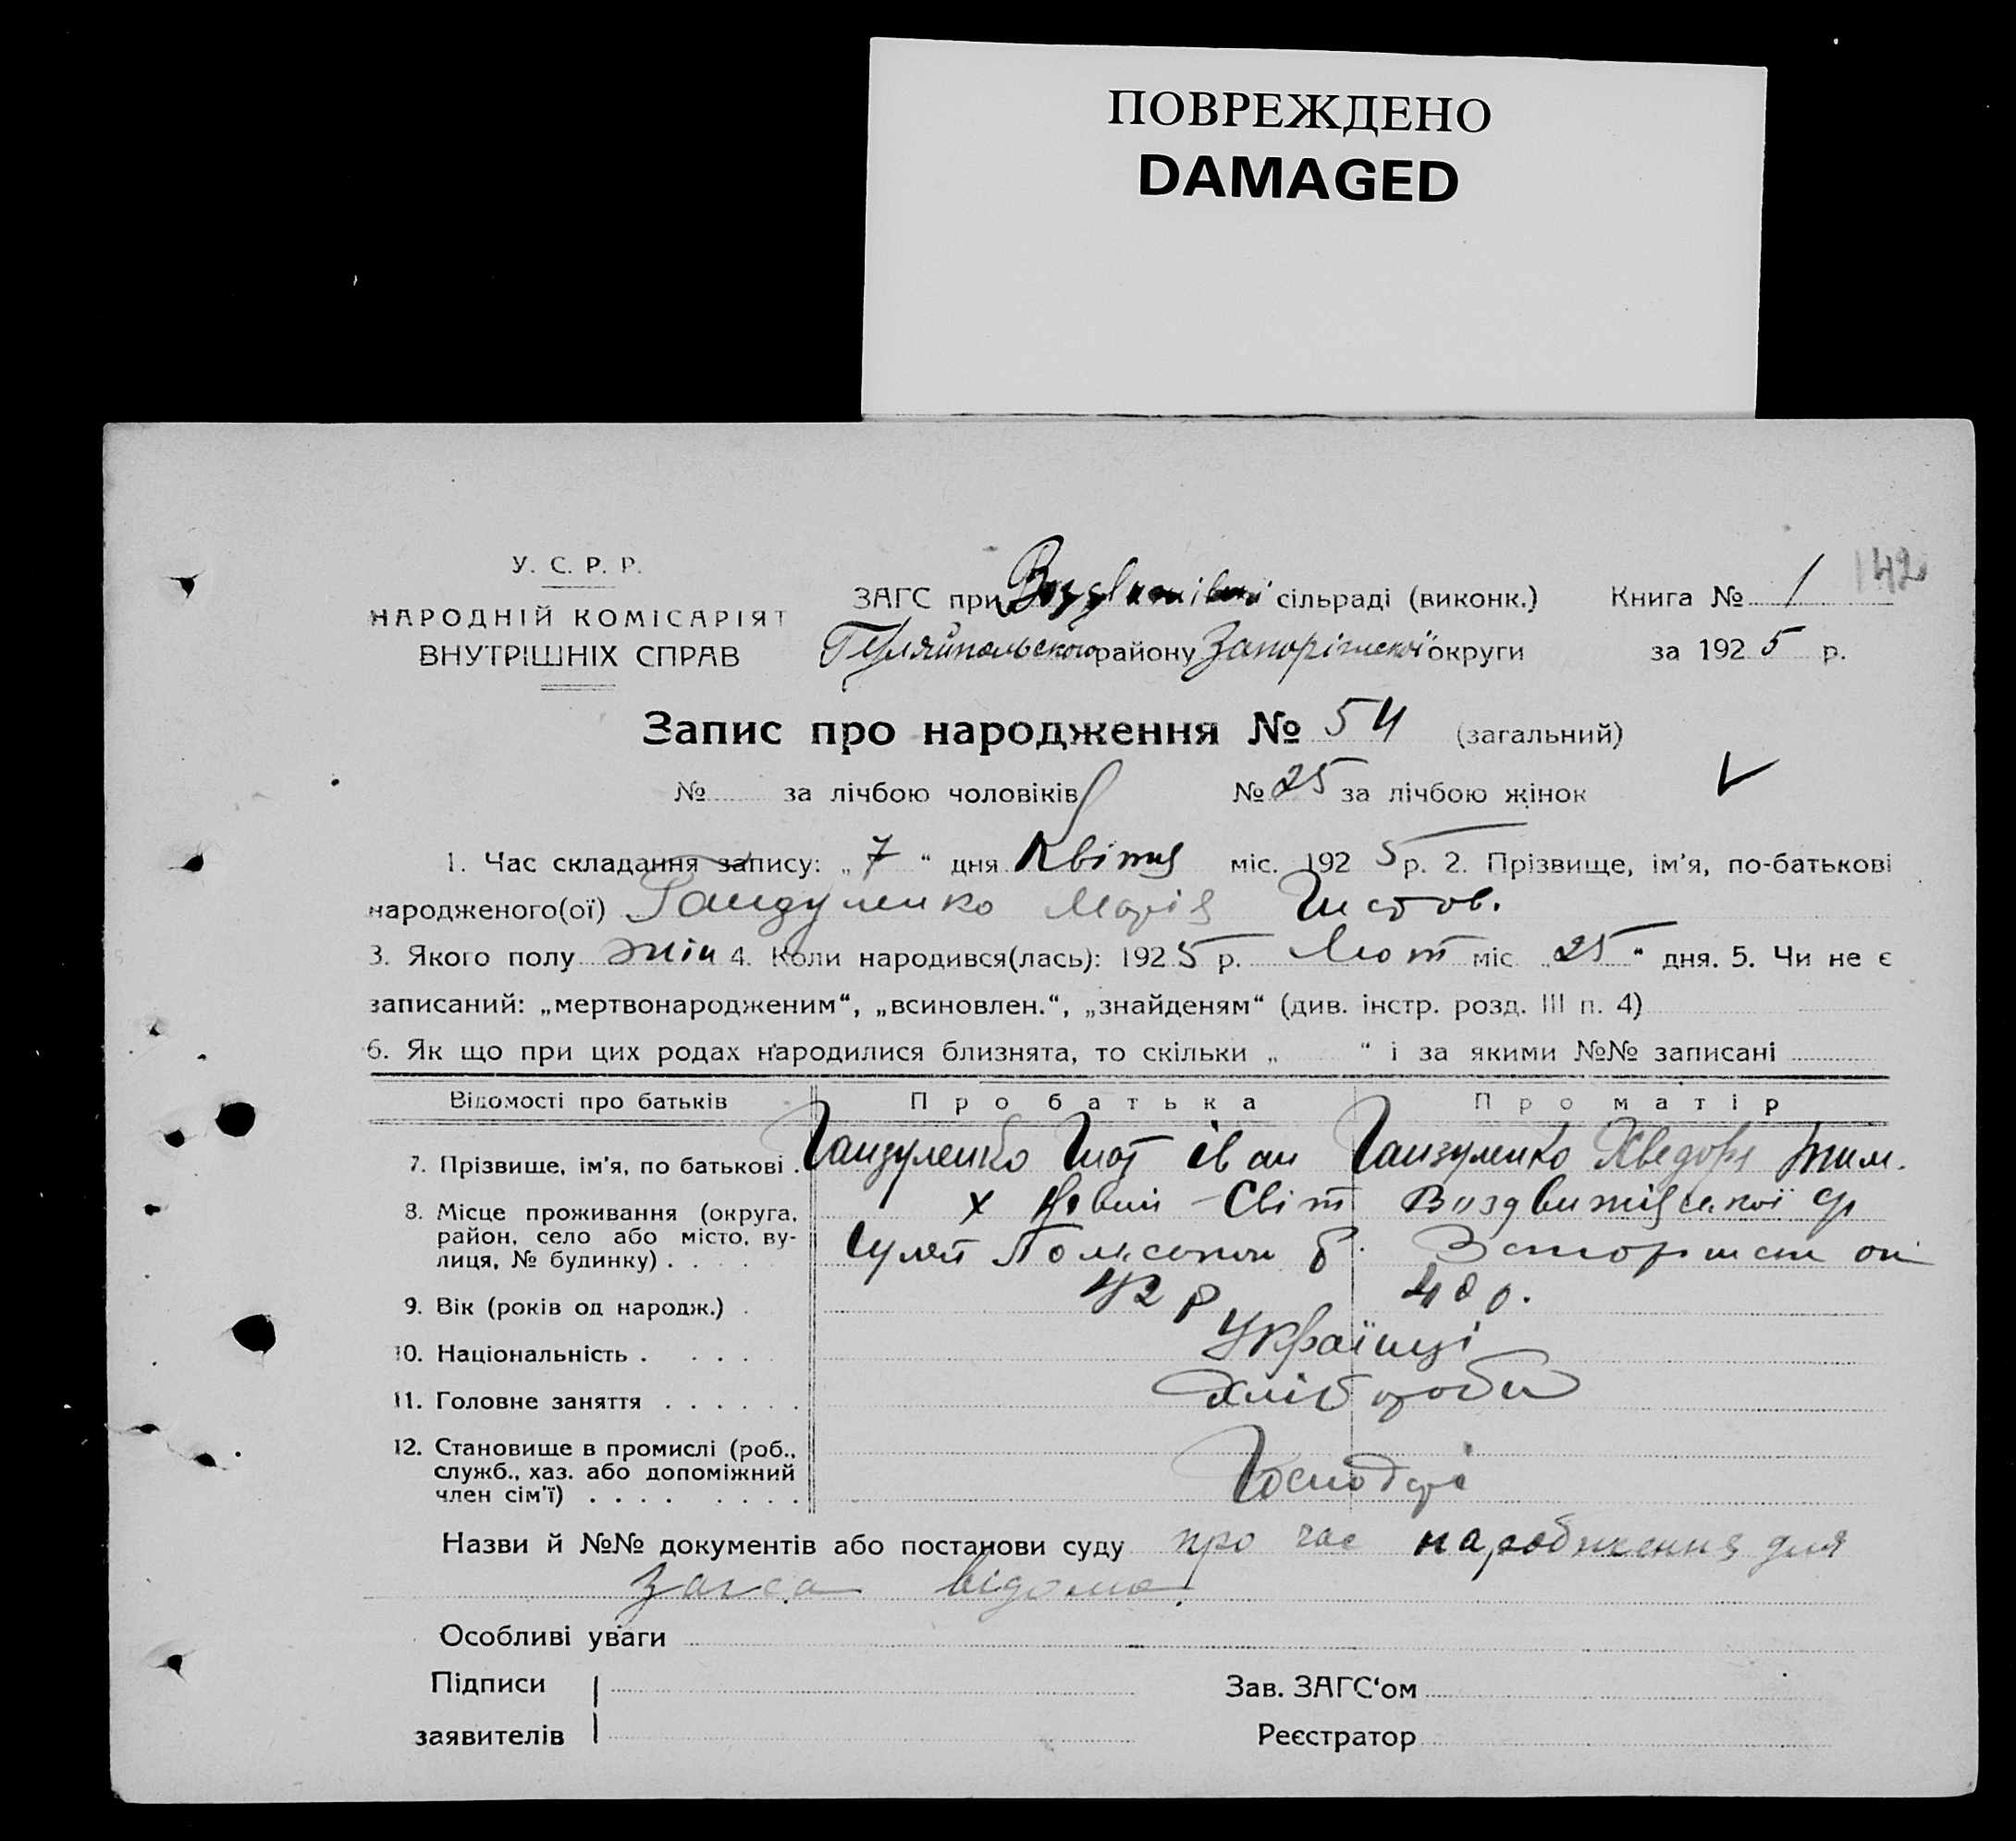 ПОВРЕЖДЕНО
DAMAGED
У. С. Р. Р.
НАРОДНІЙ КОМІСАРІЯТ
ВНУТРІШНІХ СПРАВ
ЗАГС при сільраді (виконк.)
Гуляйпольського району Запоріжської округи
Книга № 1
142
за 1925 р.
Запис про народження № 54 (загальний)
№ за лічбою чоловіків № 25 за лічбою жінок
1. Час складання запису: „ 7 “ дня Квітня міс. 1925 р. 2. Прізвище, ім'я, по-батькові
народженого(ої) Марія
3. Якого полу жін 4. Коли народився(лась): 1925 р. Лют міс. „ 25 “ дня. 5. Чи не є
записаний: „мертвонародженим“, „всиновлен.“, „знайденям“ (див. інстр. розд. III п. 4)
6. Як що при цих родах народилися близнята, то скільки „ “ і за якими №№ записані
Відомості про батьків Про батька Про матір
7. Прізвище, ім'я, по батькові . Ганзуленко Іван Ганзуленко Хведора Тим.
8. Місце проживання (округа,
район, село або місто, ву-
лиця, № будинку) . . . . .
х Новий-Світ Воздвижівської
Гуляй
9. Вік (років од народж.) . 42 р 40 р.
10. Національність . . . . . Українці
11. Головне заняття . . . . . . Хлібороби
12. Становище в промислі (роб.,
служб., хаз. або допоміжний
член сім'ї) . . . . . . . .
Господарі
Назви й №№ документів або постанови суду про час народження для
загса відомо.
Особливі уваги
Підписи
заявителів
Зав. ЗАГС'ом
Реєстратор